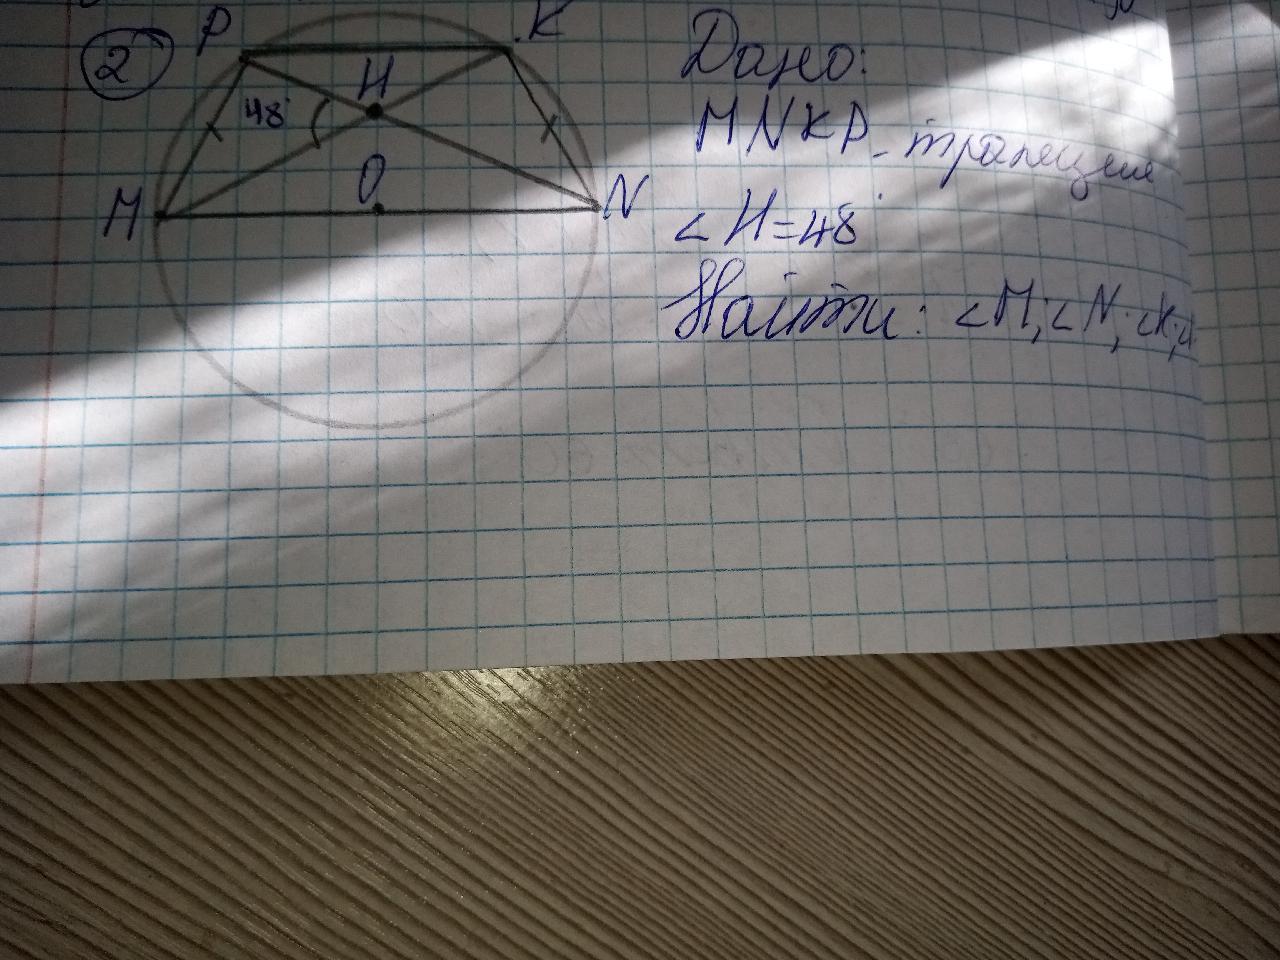 2
P
K
H
48°
O
M
N
Дано:
MNKP - трапеция
∠H=48°
Найти: ∠M; ∠N; ∠K;